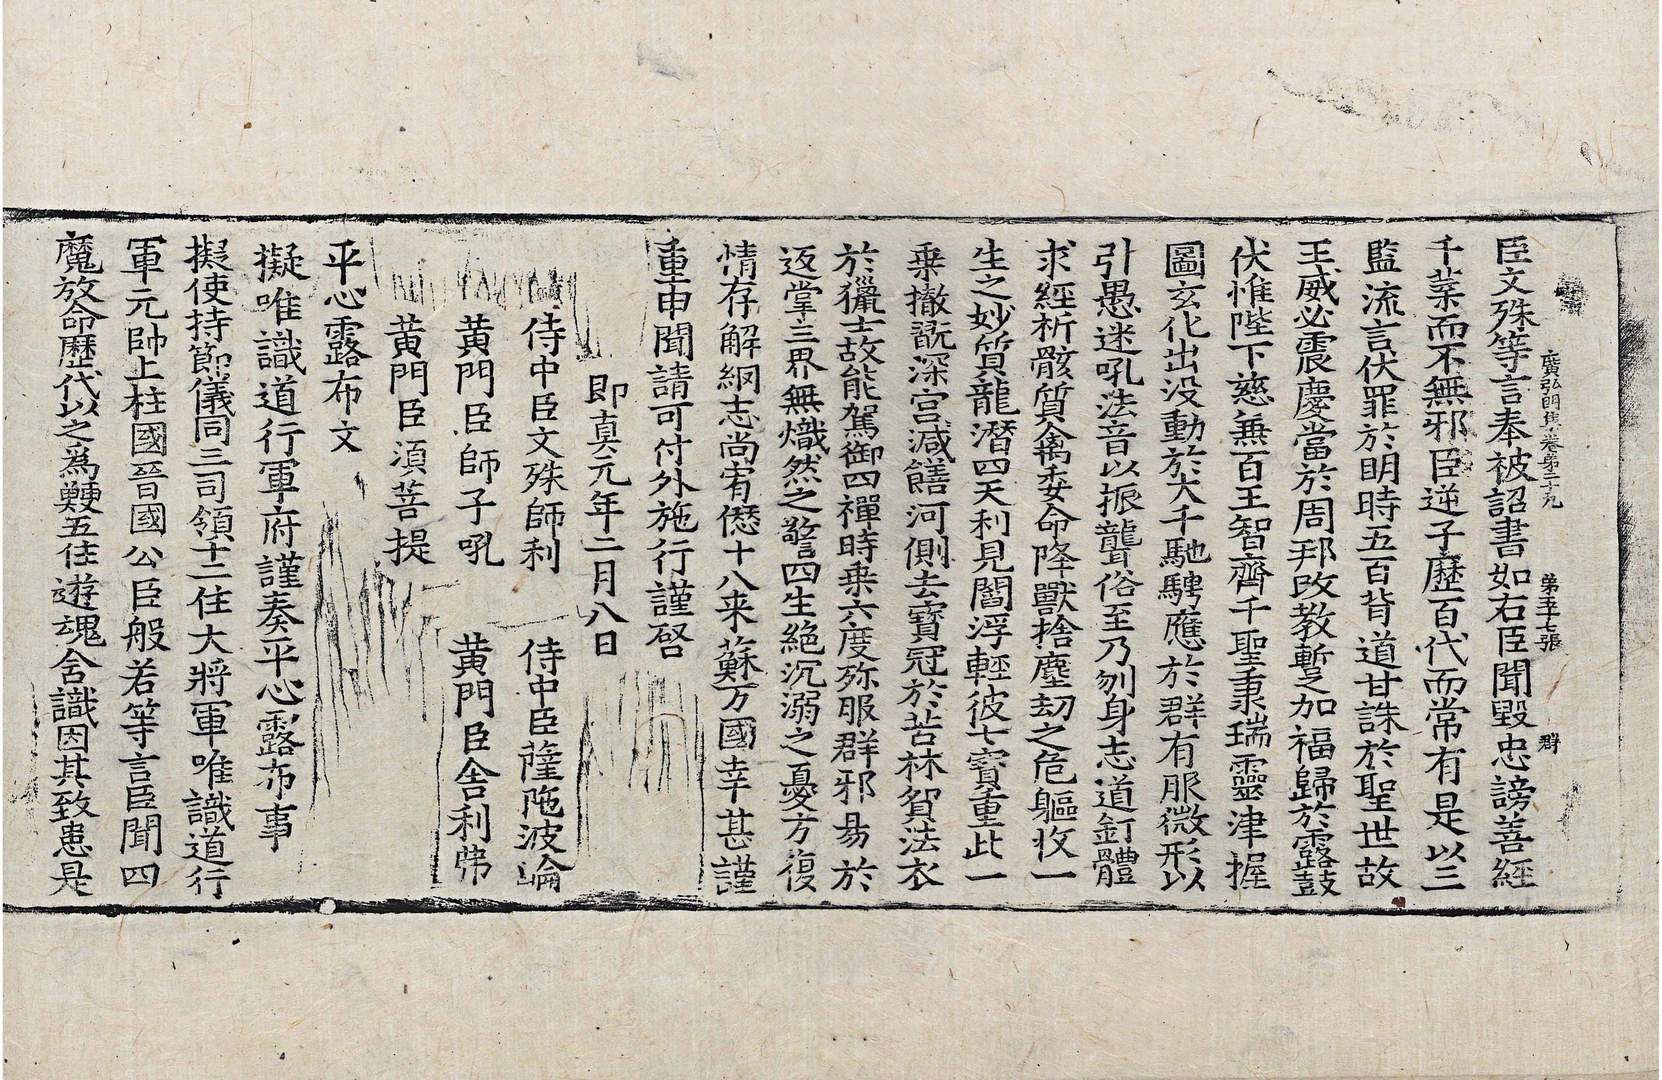 廣弘明集卷第二十九　第五十七張　群
臣文殊等言奉被詔書如右臣聞毀忠謗善經
千葉而不無邪臣逆子歷百代而常有是以三
監流言伏罪於明時五百背道甘誅於聖世故
王威必震慶當於周邦改教蹔加福歸於露鼓
伏惟陛下慈兼百王智齊千聖秉瑞靈津握
圖玄化出没動於大千馳騁應於群有服微形以
引愚迷吼法音以振聾俗至乃刎身志道釘體
求經析骸質禽委命降獸捨塵劫之危軀收一
生之妙質龍潛四天利見閻浮輕彼七寶重此一
乗撤翫深宮減饍河側去寶冠於苦林貿法衣
於獵士故能駕御四禪時乗六度弥服群邪易於
返掌三界無熾然之警四生絶沉溺之憂方復
情存解網志尚宥愆十八来蘇万國幸甚謹
重申聞請可付外施行謹啓
即真元年二月八日
侍中臣文殊師利　侍中臣薩陁波崘
黄門臣師子吼　黄門臣舍利弗
黄門臣湏菩提
平心露布文
擬唯識道行軍府謹奏平心露布事
擬使持節儀同三司領十二住大將軍唯識道行
軍元帥上柱國晉國公臣般若等言臣聞四
魔放命歷代以之為難五住遊魂含識因其致患是